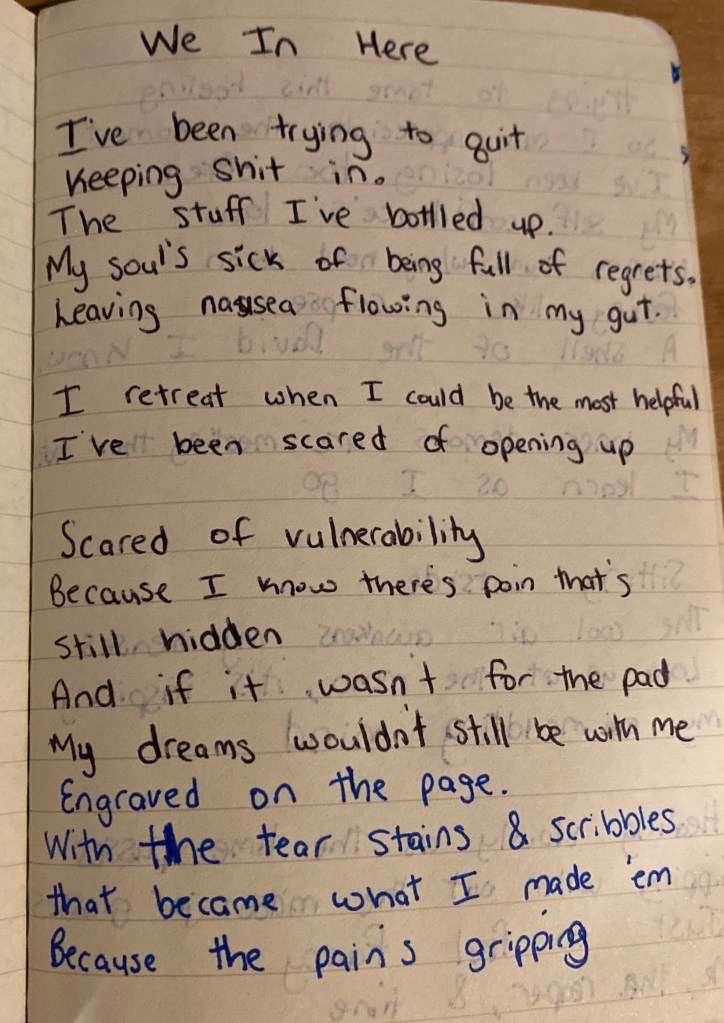 We In Here
I've been trying to quit
Keeping shit in.
The stuff I've bottled up.
My soul's sick of being full of regrets.
Leaving nausea flowing in my gut.
I retreat when I could be the most helpful
I've been scared of opening up
Scared of vulnerability
Because I know there's pain that's
still hidden
And if it wasn't for the pad
My dreams wouldn't still be with me
Engraved on the page.
With the tear stains & scribbles
that became what I made 'em
Because the pain's gripping